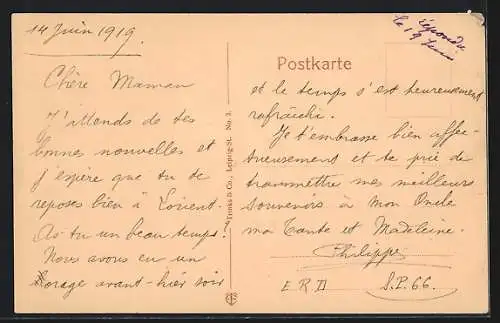 14 Juin 1919.
Chère Maman
J'attends de tes
bonnes nouvelles et
j'espère que tu te
reposes bien à Lorient.
As tu un beau temps?
Nous avons eu un
orage avant-hier soir
Trinks & Co., Leipzig-St. No. 3.
Postkarte
répondu
le 19 juin
et le temps s'est heureusement
rafraîchi.
Je t'embrasse bien affec-
tueusement et te prie de
transmettre mes meilleurs
souvenirs à mon Oncle
ma Tante et Madeleine.
Philippe
E R D S.P. 66.